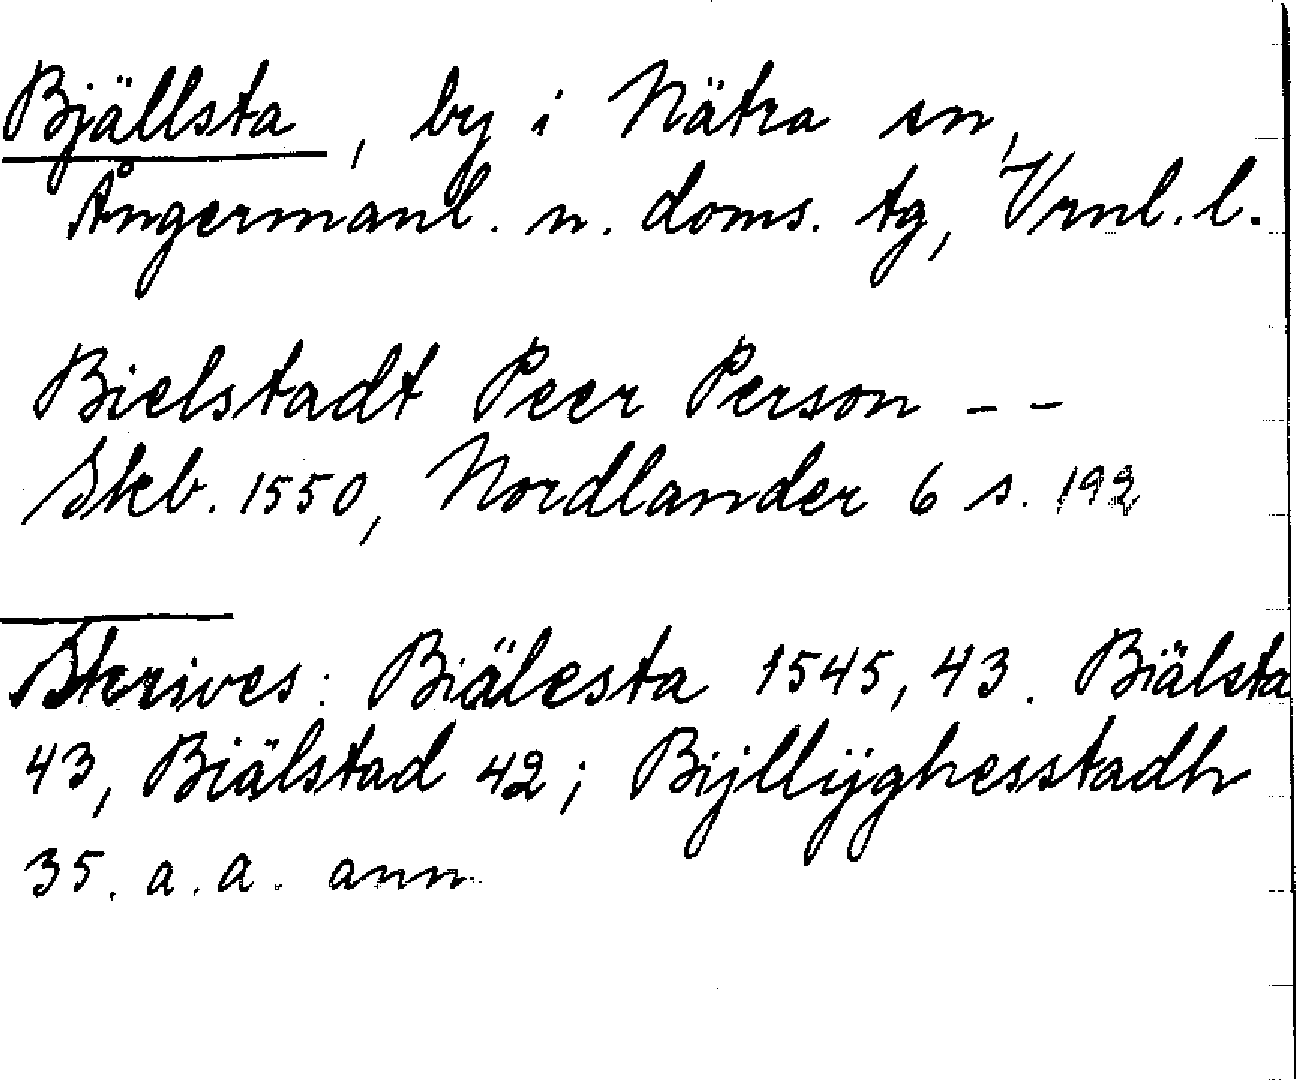 Bjällsta, by i Nätra sn,
Ångermanl. n. doms. tg, Vrnl. l.
Bielstadt Peer Person - -
Skb. 1550, Nordlander 6 s. 192
Skrives: Biälesta 1545, 43. Biälsta
43, Biälstad 42; Bijllijghesstadh
35. a. a. ann.